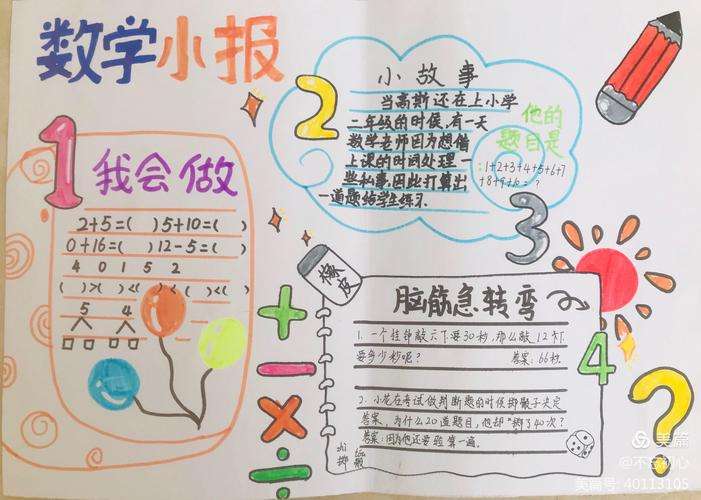 数学小报
1
我会做
2+5=( )5+10=( )
0+16=( )12-5=( )
4 0 1 5 2
( )>( )<( )<( )<( )
5 4
2
小故事
当高斯还在上小学
二年级的时候,有一天
数学老师因为想借
上课的时间处理一
些私事,因此打算出
一道题给学生练习.
他的
题目是
:1+2+3+4+5+6+7
+8+9+10=?
3
橡皮
脑筋急转弯
1.一个挂钟敲六下要30秒,那么敲12下
要多少秒呢? 答案:66秒.
2.小花在考试做判断题的时候掷骰子决定
答案,为什么20道题目,他却"掷了40次?
答案:因为他还要验算一遍.
zhì tóu
掷 骰
+
−
×
÷
4
?
美篇
@不忘初心
美篇号: 40113105